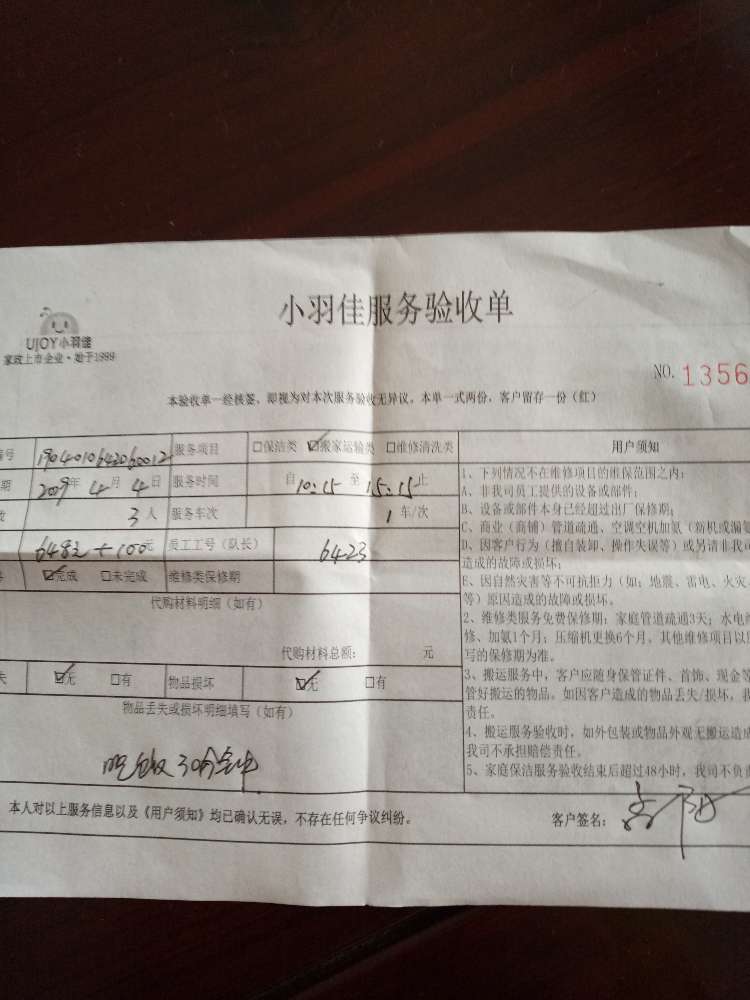 小羽佳服务验收单
UJOY小羽佳
家政上市企业·始于1999
NO. 1356
本验收单一经核签，即视为对本次服务验收无异议，本单一式两份，客户留存一份（红）
号 1904010642060012 服务项目 □保洁类 ☑搬家运输类 □维修清洗类 用户须知
期 2009年 4月 4日 服务时间 自10:15 至 15:15止
3人 服务车次 1 车/次
648元+100元 员工工号（队长） 6423
☑完成 □未完成 维修类保修期
代购材料明细（如有）
代购材料总额： 元
失 ☑无 □有 物品损坏 ☑无 □有
物品丢失或损坏明细填写（如有）
吃饭30分钟
1、下列情况不在维修项目的维保范围之内：
A、非我司员工提供的设备或部件；
B、设备或部件本身已经超过出厂保修期；
C、商业（商铺）管道疏通、空调空机加氨（新机或漏氨
D、因客户行为（擅自装卸、操作失误等）或另请非我司
造成的故障或损坏；
E、因自然灾害等不可抗拒力（如：地震、雷电、火灾
等）原因造成的故障或损坏。
2、维修类服务免费保修期：家庭管道疏通3天；水电维
修、加氨1个月；压缩机更换6个月，其他维修项目以
写的保修期为准。
3、搬运服务中，客户应随身保管证件、首饰、现金等
管好搬运的物品。如因客户造成的物品丢失/损坏，我
责任。
4、搬运服务验收时，如外包装或物品外观无搬运造成
我司不承担赔偿责任。
5、家庭保洁服务验收结束后超过48小时，我司不负责
本人对以上服务信息以及《用户须知》均已确认无误，不存在任何争议纠纷。 客户签名：